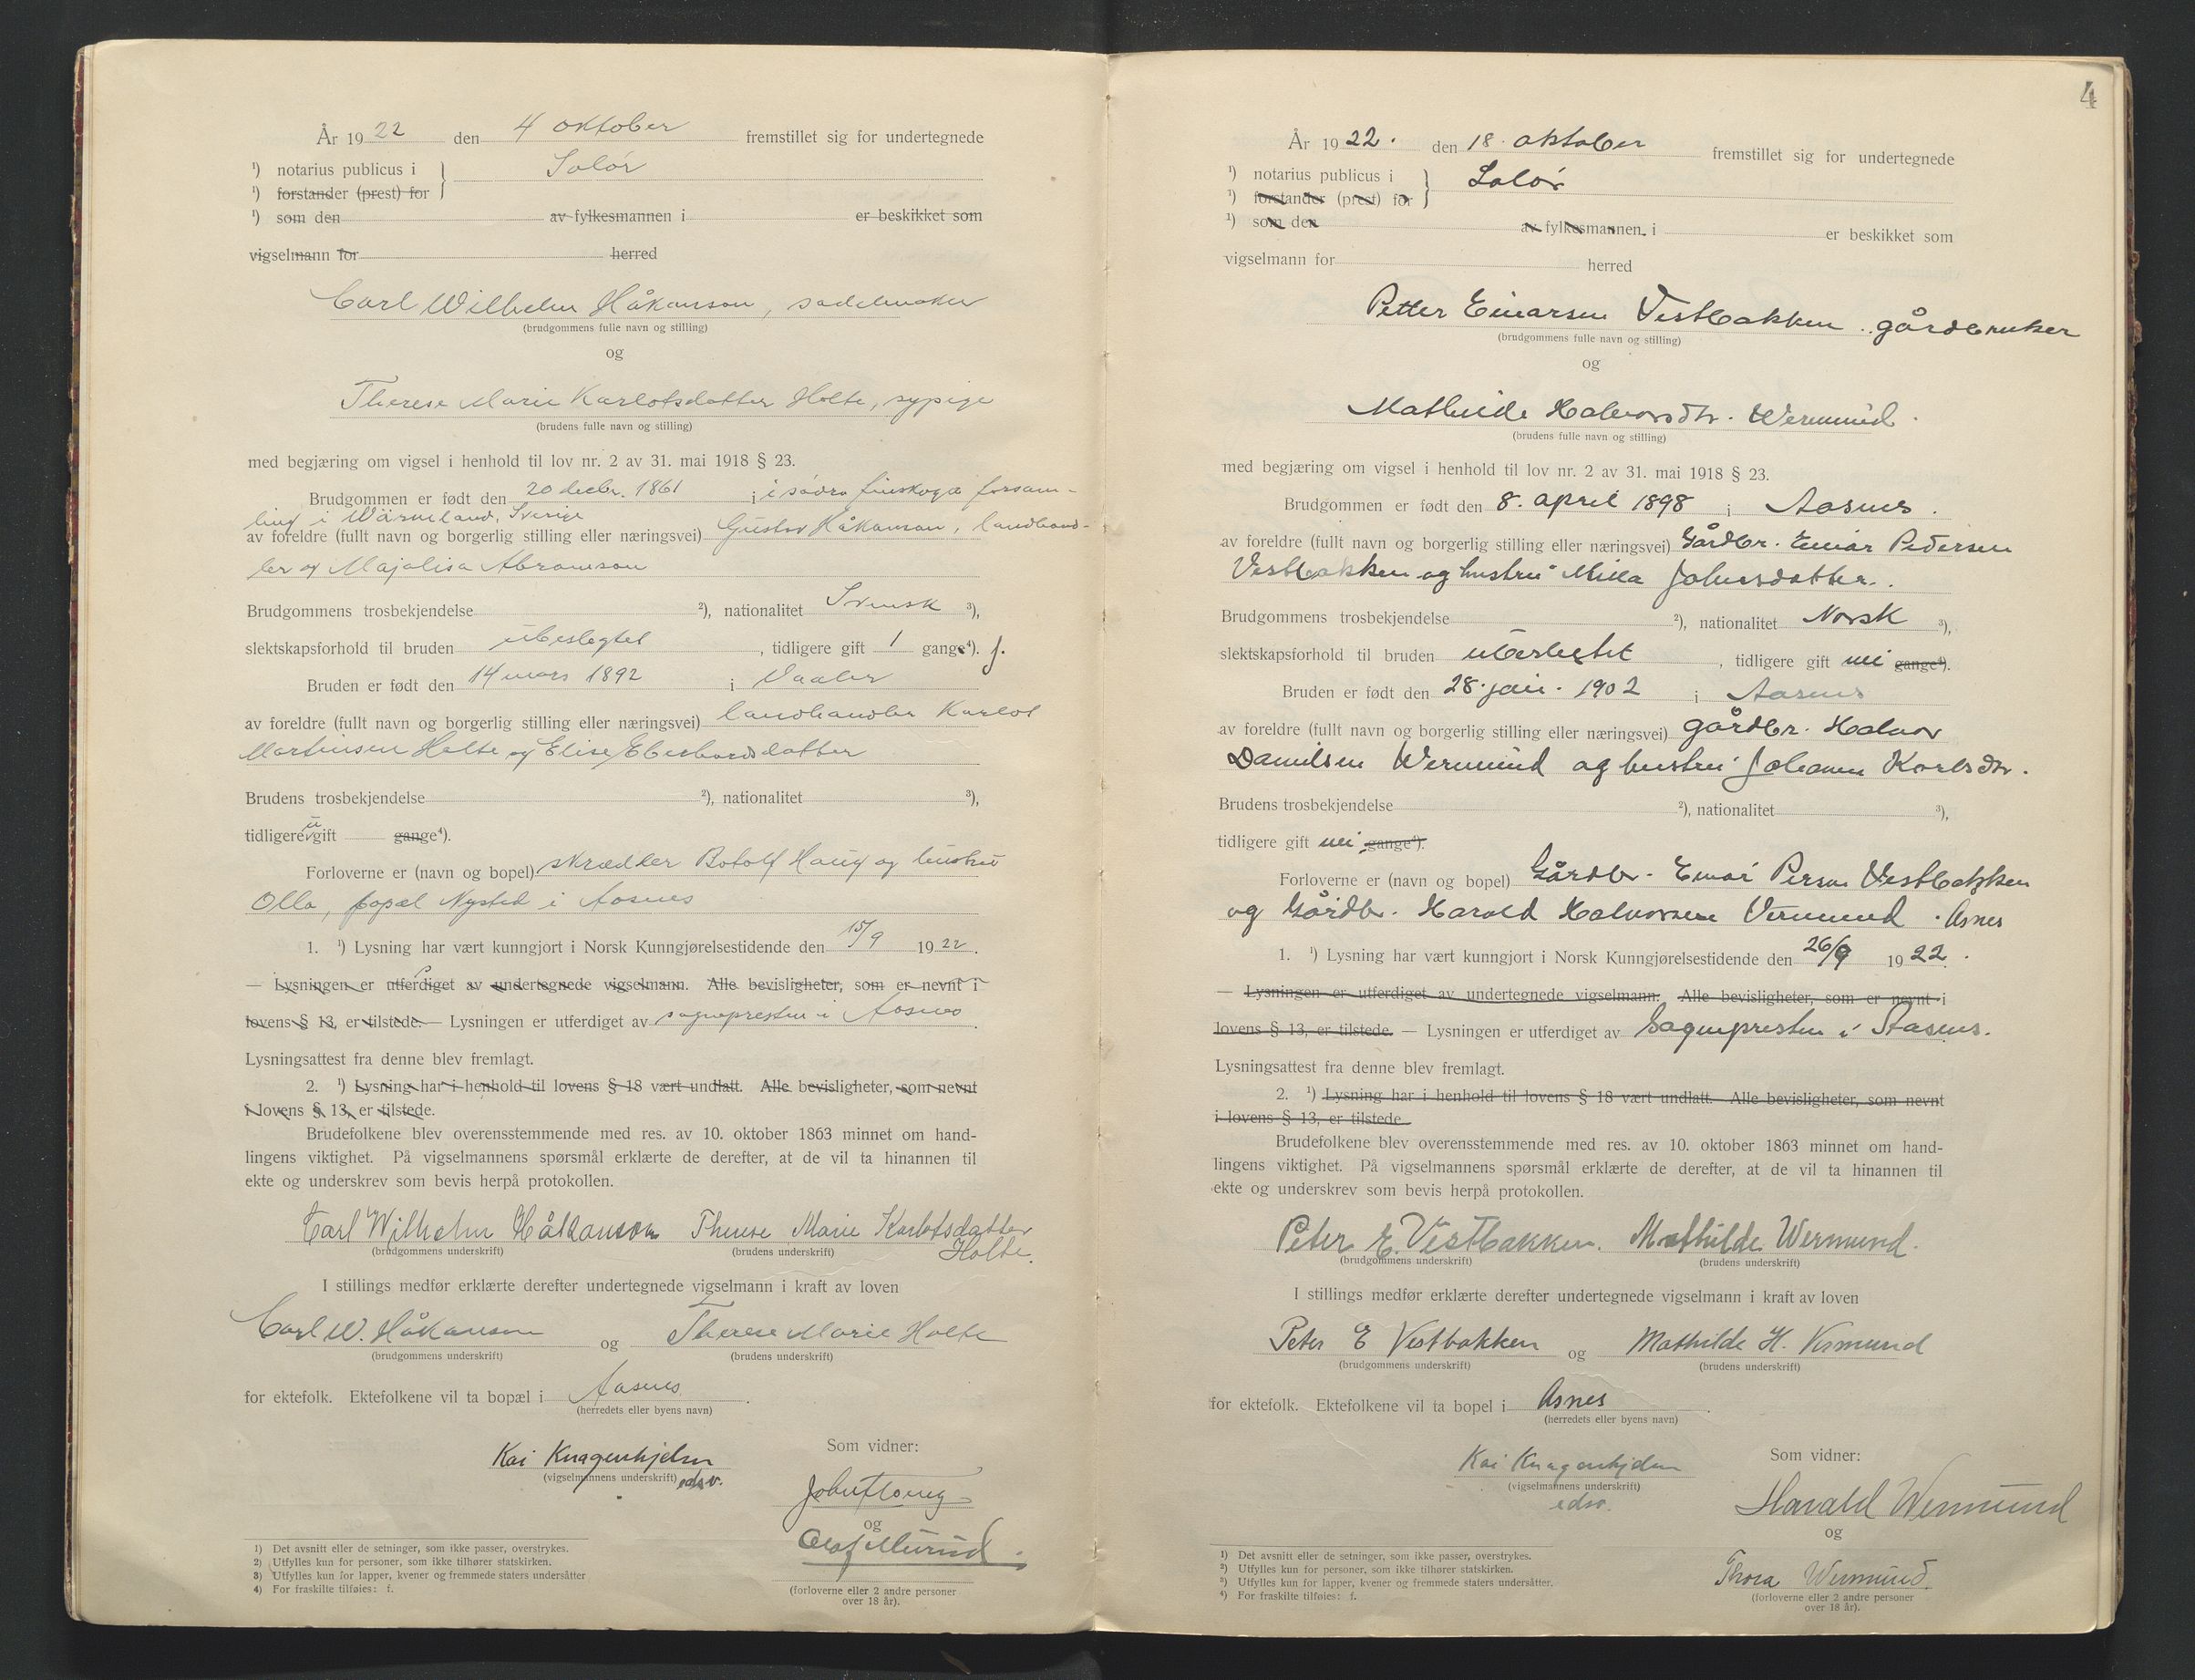 År 1922 den 4 oktober fremstillet sig for undertegnede
¹) notarius publicus i } Solør
¹) forstander (prest) for
¹) som den av fylkesmannen i er beskikket som
vigselmann for herred
Carl Wilhelm Håkanson, sadelmaker
(brudgommens fulle navn og stilling)
og
Therese Marie Karlotsdatter Holte, sypige
(brudens fulle navn og stilling)
med begjæring om vigsel i henhold til lov nr. 2 av 31. mai 1918 § 23.
Brudgommen er født den 20 decbr. 1861 i i södra finskoga forsam-
ling i Wärmeland, Sverige
av foreldre (fullt navn og borgerlig stilling eller næringsvei) Gustav Håkanson, landhand-
ler og Majalisa Abramson
Brudgommens trosbekjendelse ²), nationalitet Svensk ³),
slektskapsforhold til bruden ubeslegtet, tidligere gift 1 gange⁴). f.
Bruden er født den 14 mars 1892 i Vaaler
av foreldre (fullt navn og borgerlig stilling eller næringsvei) landhandler Karlot
Martinsen Holte og Elise Eberhardsdatter
Brudens trosbekjendelse ²), nationalitet ³),
tidligere ugift gange⁴).
Forloverne er (navn og bopel) skrædder Botolf Haug og hustru
Olla, bopæl Nysted i Aasnes
1. ¹) Lysning har vært kunngjort i Norsk Kunngjørelsestidende den 15/9 1922.
— Lysningen er utferdiget av undertegnede vigselmann. Alle bevisligheter, som er nevnt i
lovens § 13, er tilstede. — Lysningen er utferdiget av sognepresten i Aasnes.
Lysningsattest fra denne blev fremlagt.
2. ¹) Lysning har i henhold til lovens § 18 vært undlatt. Alle bevisligheter, som nevnt
i lovens § 13, er tilstede.
Brudefolkene blev overensstemmende med res. av 10. oktober 1863 minnet om hand-
lingens viktighet. På vigselmannens spørsmål erklærte de derefter, at de vil ta hinannen til
ekte og underskrev som bevis herpå protokollen.
Carl Wilhelm Håkanson Therese Marie Karlotsdatter
Holte.
(brudgommens underskrift) (brudens underskrift)
I stillings medfør erklærte derefter undertegnede vigselmann i kraft av loven
Carl W. Håkanson og Therese Marie Holte
(brudgommens underskrift) (brudens underskrift)
for ektefolk. Ektefolkene vil ta bopæl i Aasnes.
(herredets eller byens navn)
Som vidner:
Kai Knagenhjelm
(vigselmannens underskrift) edsv.
John Haug
og
Olaf Murud.
(forloverne eller 2 andre personer
over 18 år).
1) Det avsnitt eller de setninger, som ikke passer, overstrykes.
2) Utfylles kun for personer, som ikke tilhører statskirken.
3) Utfylles kun for lapper, kvener og fremmede staters undersåtter
4) For fraskilte tilføies: f.
4
År 1922. den 18. oktober fremstillet sig for undertegnede
¹) notarius publicus i } Solør
¹) forstander (prest) for
¹) som den av fylkesmannen i er beskikket som
vigselmann for herred
Petter Einarsen Vestbakken. gårdbruker
(brudgommens fulle navn og stilling)
og
Mathilde Halvorsdtr. Wermund.
(brudens fulle navn og stilling)
med begjæring om vigsel i henhold til lov nr. 2 av 31. mai 1918 § 23.
Brudgommen er født den 8. april 1898 i Aasnes.
av foreldre (fullt navn og borgerlig stilling eller næringsvei) Gårdbr. Einar Pedersen
Vestbakken og hustru Milla Johnsdatter.
Brudgommens trosbekjendelse ²), nationalitet Norsk ³),
slektskapsforhold til bruden ubeslegtet, tidligere gift nei gange⁴).
Bruden er født den 28. jan. 1902 i Aasnes
av foreldre (fullt navn og borgerlig stilling eller næringsvei) gårdbr. Halvor
Danielsen Wermund og hustru Johanne Karlsdtr.
Brudens trosbekjendelse ²), nationalitet ³),
tidligere gift nei gange⁴).
Forloverne er (navn og bopel) Gårdbr. Einar Persen Vestbakken
og Gårdbr. Harald Halvorsen Vermund. Asnes
1. ¹) Lysning har vært kunngjort i Norsk Kunngjørelsestidende den 26/9 1922.
— Lysningen er utferdiget av undertegnede vigselmann. Alle bevisligheter, som er nevnt i
lovens § 13, er tilstede. — Lysningen er utferdiget av Sognepresten i Aasnes.
Lysningsattest fra denne blev fremlagt.
2. ¹) Lysning har i henhold til lovens § 18 vært undlatt. Alle bevisligheter, som nevnt
i lovens § 13, er tilstede.
Brudefolkene blev overensstemmende med res. av 10. oktober 1863 minnet om hand-
lingens viktighet. På vigselmannens spørsmål erklærte de derefter, at de vil ta hinannen til
ekte og underskrev som bevis herpå protokollen.
Peter E. Vestbakken. Mathilde Wermund.
(brudgommens underskrift) (brudens underskrift)
I stillings medfør erklærte derefter undertegnede vigselmann i kraft av loven
Peter E Vestbakken og Mathilde H. Vermund
(brudgommens underskrift) (brudens underskrift)
for ektefolk. Ektefolkene vil ta bopel i Asnes.
(herredets eller byens navn)
Som vidner:
Kai Knagenhjelm
(vigselmannens underskrift)
edsv.
Harald Wermund
og
Thora Wermund.
(forloverne eller 2 andre personer
over 18 år).
¹) Det avsnitt eller de setninger, som ikke passer, overstrykes.
²) Utfylles kun for personer, som ikke tilhører statskirken.
³) Utfylles kun for lapper, kvener og fremmede staters undersåtter.
⁴) For fraskilte tilføies: f.